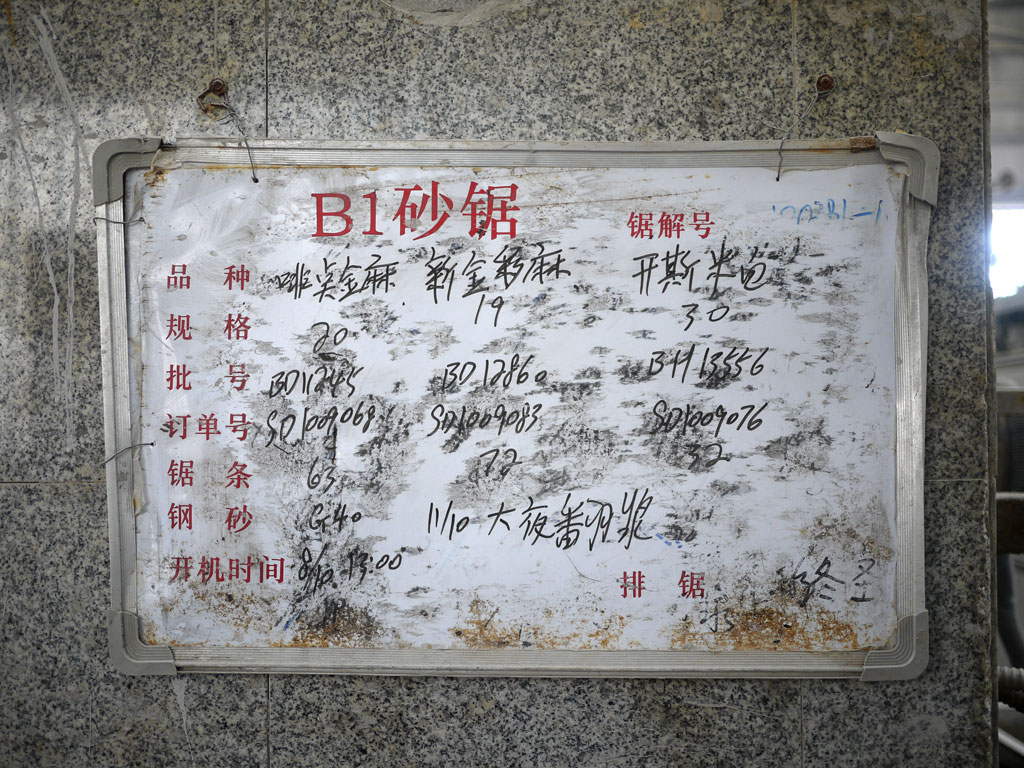 B1砂锯 锯解号
品种 啡 金麻 新金彩麻 开斯米
规格 20 19 30
批号 BD11245 BD12860 BH13556
订单号 SD1009068 SD1009083 SD1009076
锯条 63 72 32
钢砂 G40 11/10 大夜番 浆
开机时间 8/10 13:00 排锯